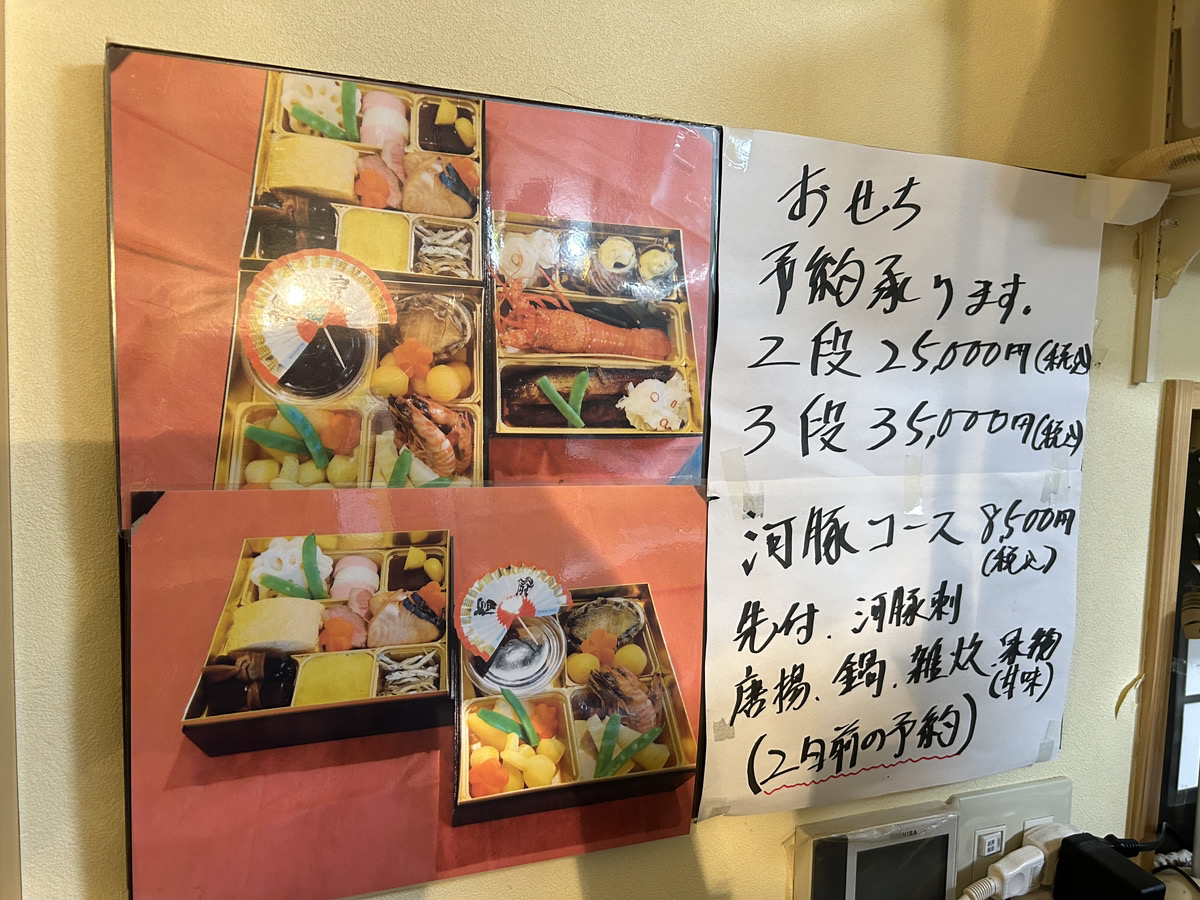 おせち
予約承ります。
2段 25,000円(税込)
3段 35,000円(税込)
河豚コース 8,500円
(税込)
先付、河豚刺
唐揚、鍋、雑炊、果物
(甘味)
(2日前の予約)
TOSHIBA